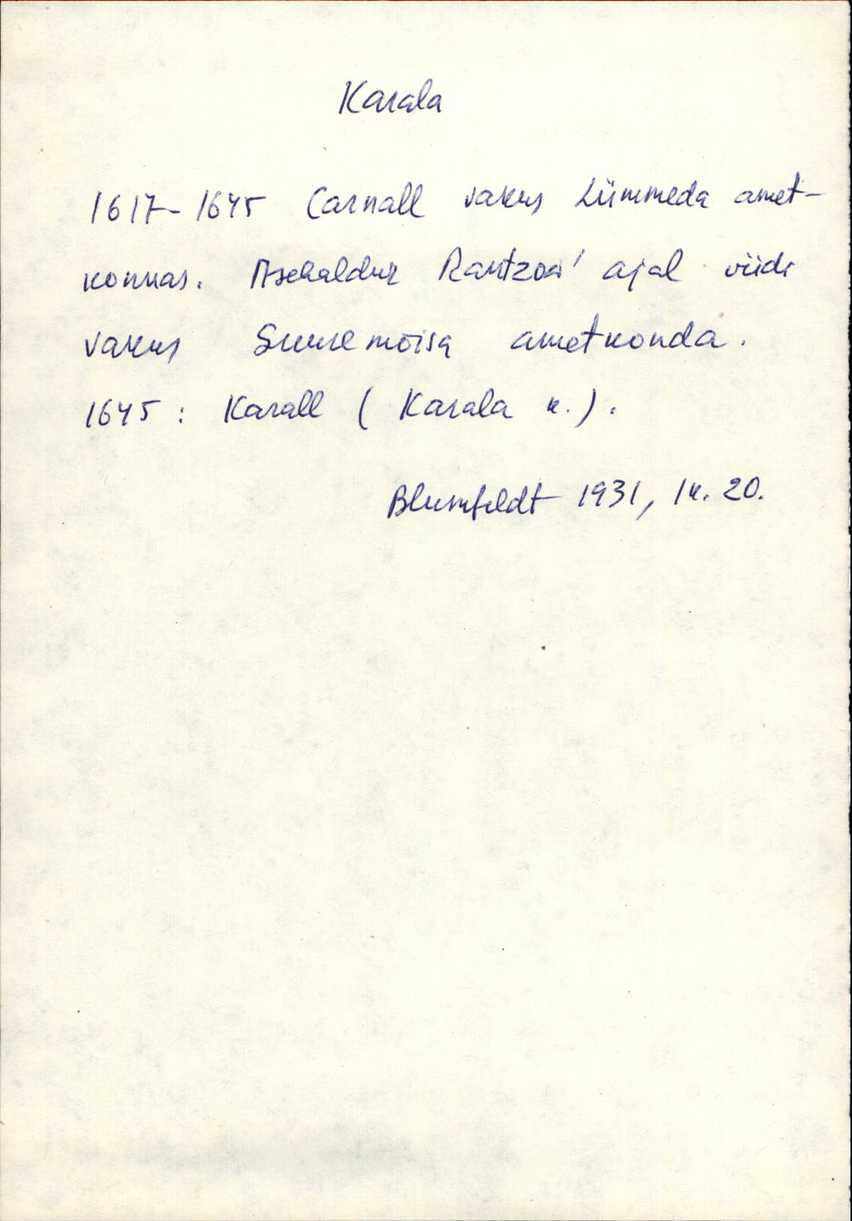 Karala
1617-1645 Carnall vakus Lümmeda amet-
konnas. Asehaldur Rantzow' ajal viidi
vakus Suuremõisa ametkonda.
1645: Karall (Karala k.).
Blumfeldt 1931, lk. 20.